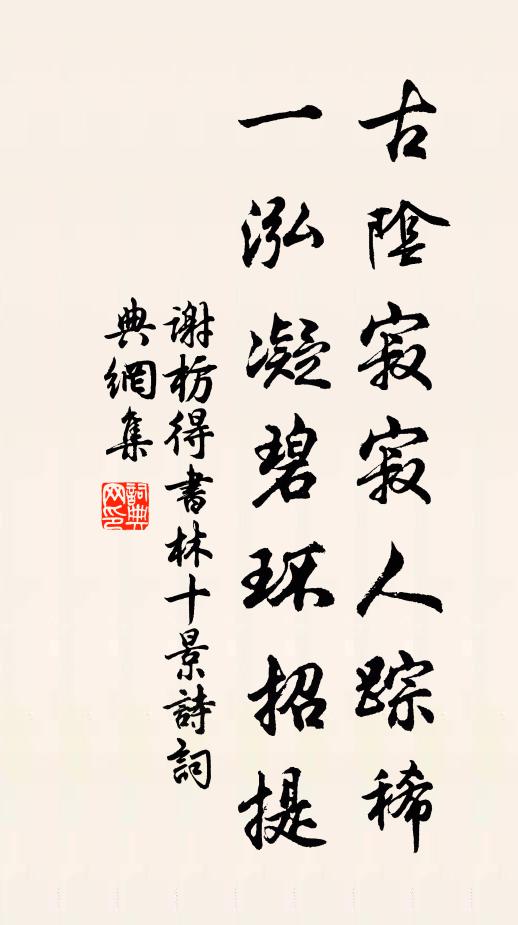 古陰寂寂人踪稀
一泓凝碧环招提
谢枋得書林十景詩詞
典網集
詞典网印